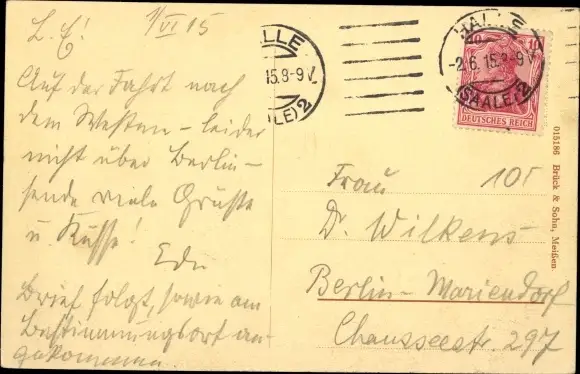 L. E! 1/VI 15
Auf der Fahrt nach
dem Westen - leider
nicht über Berlin -
sende viele Grüsse
u. Küsse!
Edu
Brief folgt, sowie am
Bestimmungsort an-
gekommen
HALLE
15.8-9V.
(SAALE) 2
HALLE
-2.6.15.8-9V.
(SAALE) 2
10
DEUTSCHES REICH
Frau 105
D. Wilkens
Berlin-Mariendorf
Chausseestr. 297
015186 Brück & Sohn, Meißen.